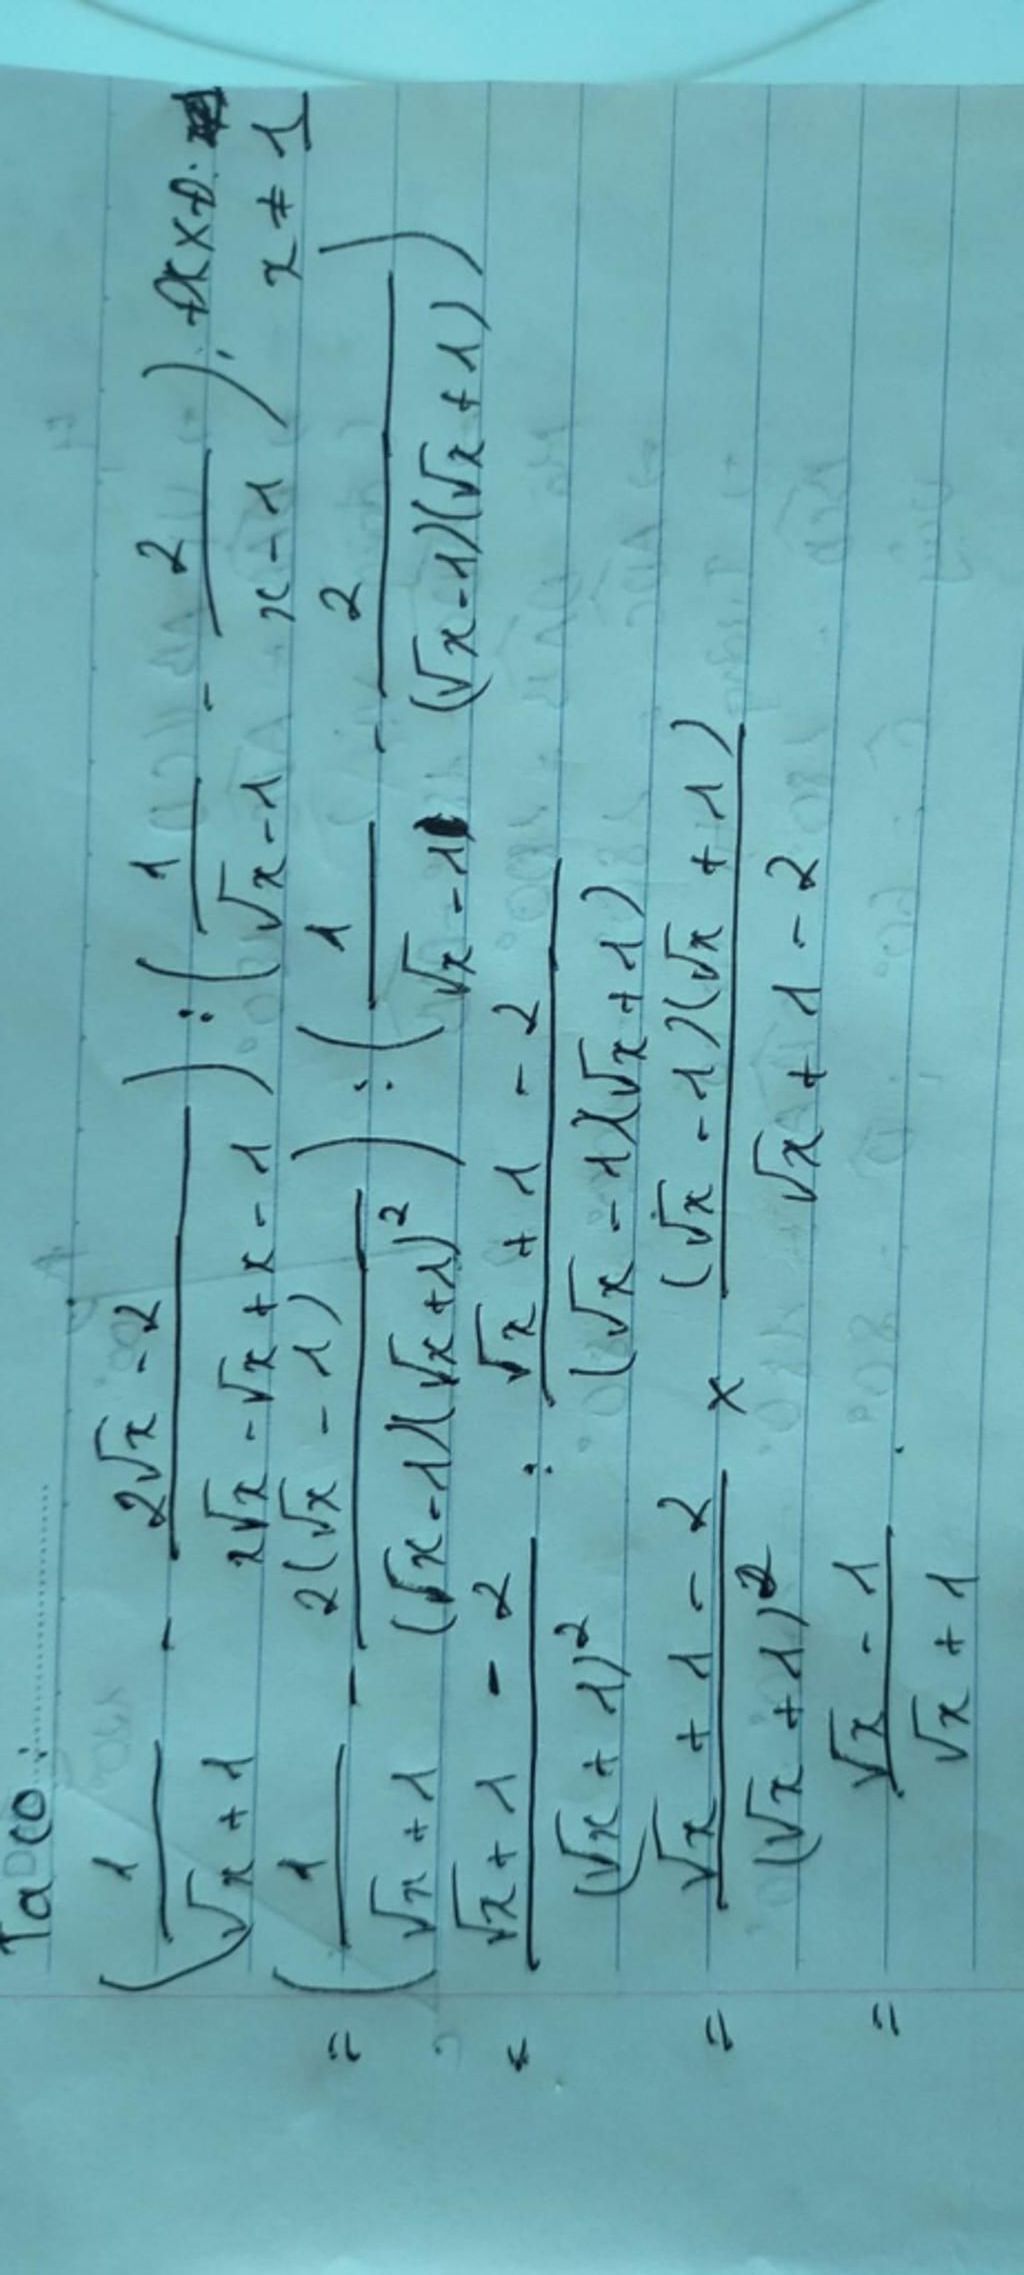 Ta có:
(1/(√x+1) - (2√x-2)/(x√x-√x+x-1)) : (1/(√x-1) - 2/(x-1)). ĐKXĐ:
x ≠ 1
= (1/(√x+1) - 2(√x-1)/((√x-1)(√x+1)²)) : (1/(√x-1) - 2/((√x-1)(√x+1)))
= (√x+1-2)/(√x+1)² : (√x+1-2)/((√x-1)(√x+1))
= (√x+1-2)/(√x+1)² × ((√x-1)(√x+1))/(√x+1-2)
= (√x-1)/(√x+1).